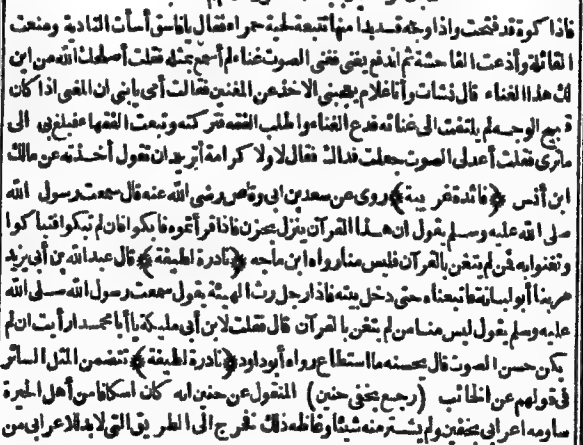 فاذا كوة قد فتحت واذا وجه قد بدا منها تتبعه لحية حمراء فقال يا فاسق أسأت التادية ومنعت
القائلة وأذعت الفاحشة ثم اندفع يغنى فغنى الصوت غناء لم أسمع بمثله فقلت أصلحك الله من اين
لك هذا الغناء قال نشأت وأنا غلام يعجبنى الاخذ عن المغنين فقالت أمى يا بنى ان المغنى اذا كان
قبيح الوجه لم يلتفت الى غنائه فدع الغناء واطلب الفقه فتركته وتبعت الفقهاء فبلغ بى الى
ما ترى فقلت أعد لى الصوت جعلت فداك فقال لا ولا كرامة أتريد ان تقول أخذته عن مالك
ابن أنس ﴿فائدة غريبة﴾ روى عن سعد بن ابى وقاص رضى الله عنه قال سمعت رسول الله
صلى الله عليه وسلم يقول ان هذا القرآن ينزل بحزن فاذا قرأتموه فابكوا فان لم تبكوا فتباكوا
وتغنوا به فمن لم يتغن بالقرآن فليس منا رواه ابن ماجه ﴿نادرة لطيفة﴾ قال عبد الله بن أبى يزيد
مر بنا أبو لبابة فاتبعناه حتى دخل بيته فاذا رجل رث الهيئة يقول سمعت رسول الله صلى الله
عليه وسلم يقول ليس منا من لم يتغن بالقرآن قال فقلت لابن أبى مليكة يا أبا محمد ارأيت ان لم
يكن حسن الصوت قال يحسنه ما استطاع رواه أبو داود ﴿نادرة لطيفة﴾ تتضمن المثل السائر
فى قولهم عن الخائب (رجع بخفى حنين) المنقول عن حنين انه كان اسكافا من أهل الحيرة
ساومه اعرابى بخفين ولم يشتر منه شيئا وغاظه ذلك فخرج الى الطريق التى لابد للاعرابى من